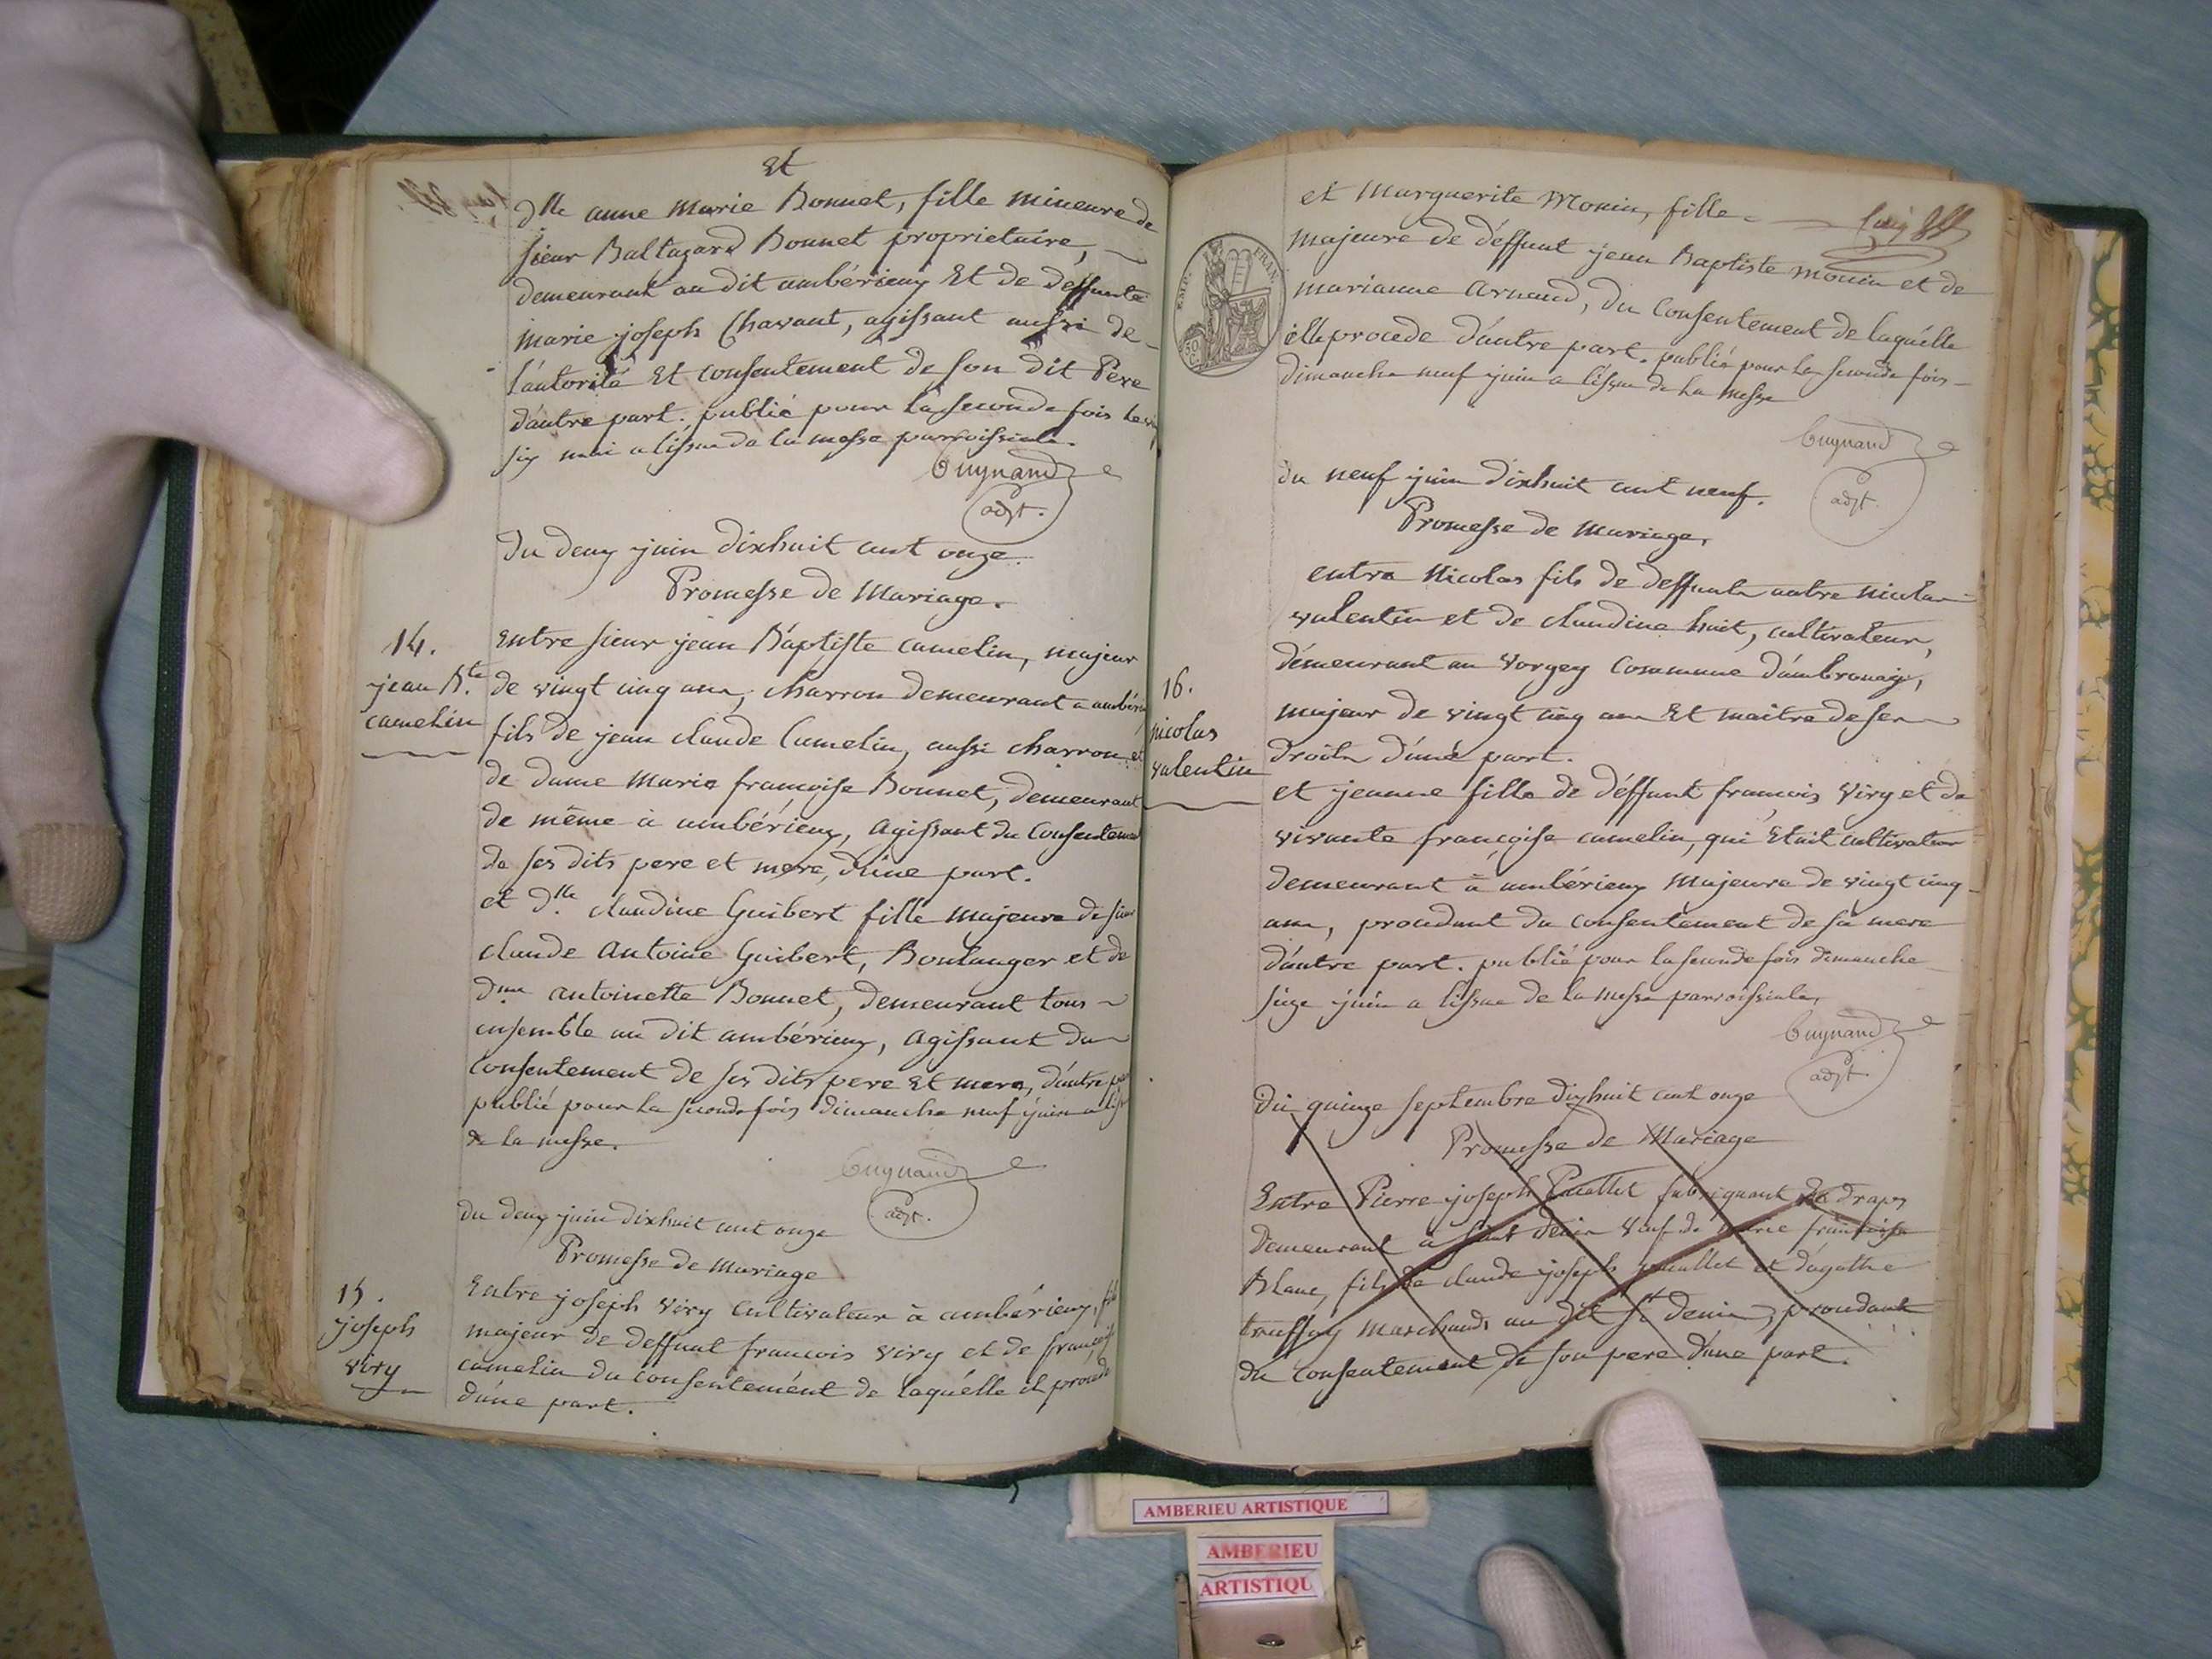 Et
dlle anne Marie Bonnet, fille mineure de
sieur Baltazard Bonnet proprietaire,
demeurant au dit ambérieux Et de deffunte
marie joseph Chavant, agissant aussi de
l'autorité Et consentement de son dit Pere
d'autre part. publié pour la seconde fois le
six mai a l'issue de la messe parroissiale.
Guynand
adjt.
Du deux juin dixhuit cent onze.
Promesse de Mariage.
14.
jean Bte
camelin
Entre sieur jean Baptiste camelin, majeur
de vingt cinq ans, charron demeurant a ambérieux
fils de jean claude Camelin, aussi charron et
de dame Marie françoise Bonnet, demeurant
de même à ambérieux, agissant du Consentement
de ses dits pere et mere, d'une part.
et dlle claudine Guibert fille majeure de sieur
claude Antoine Guibert, Boulanger et de
dme antoinette Bonnet, demeurant tous
ensemble au dit ambérieux, agissant du
consentement de ses dits pere Et mere, d'autre part
publié pour la seconde fois dimanche neuf juin a l'issue
de la messe.
Guynand
adjt.
du deux juin dixhuit cent onze
Promesse de Mariage
15.
joseph
viry
Entre joseph viry cultivateur à ambérieux, fils
majeur de deffunt francois viry et de françoise
camelin du consentement de laquélle il procede
d'une part.
et Marguerite Monin, fille
majeure de déffunt jean Baptiste monin et de
marianne Arnaud, du Consentement de laquélle
élle procede d'autre part. publié pour la seconde fois
dimanche neuf juin a l'issue de la messe
EMP. FRAN.
50 C.
Guynand
adjt.
du neuf juin dixhuit cent neuf.
Promesse de Mariage,
16.
nicolas
valentin
entre Nicolas fils de deffunts autre nicolas
valentin et de claudine huit, cultivateur,
démeurant au vorgey Commune d'ambronay,
majeur de vingt cinq ans Et maitre de ses
droits d'une part.
et jeanne fille de déffunt francois Viry et de
vivante françoise camelin, qui Etait cultivateur
demeurant à ambérieux majeure de vingt cinq
ans, procedant du consentement de sa mere
d'autre part. publié pour la seconde fois dimanche
sieze juin a l'issue de la messe parroissiale,
Guynand
adjt.
Du quinze septembre dixhuit cent onze
Promesse de Mariage
Entre Pierre joseph fabriquant de draps
demeurant à saint denis Veuf de marie françoise
Blanc, fils de claude joseph et d'agathe
marchands au dit St denis, procedant
du consentement de son pere d'une part.
AMBERIEU ARTISTIQUE
AMBERIEU
ARTISTIQU